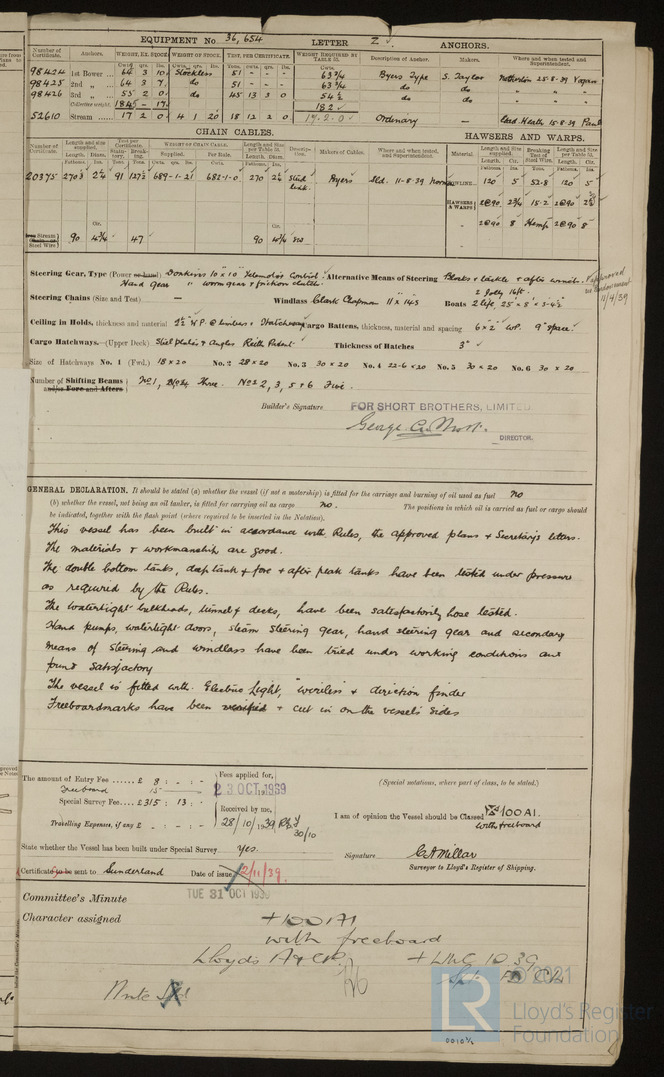 EQUIPMENT No 36,654 LETTER Z ANCHORS.
Number of Certificate. Anchors. WEIGHT, EX. STOCK WEIGHT OF STOCK. TEST, PER CERTIFICATE. WEIGHT REQUIRED BY TABLE 53. Description of Anchor. Makers. Where and when tested and Superintendent.
98424 1st Bower ... 64 3 10 Stockless 51 - - - 63 3/4 Byers Type S. Taylor Netherton 25.8.39
98425 2nd „ ... 64 3 7 do 51 - - - 63 3/4 do do " "
98426 3rd „ ... 55 2 0 do 45 13 3 0 54 1/2 do do " "
Collective weight. 184 5 - 17 182
52610 Stream ... 17 2 0 4 1 20 18 12 2 0 17.2.0 Ordinary - 15.8.39
CHAIN CABLES. HAWSERS AND WARPS.
Number of Certificate. Length and size supplied. Test per Certificate. WEIGHT OF CHAIN CABLE. Length and size per Table 53. Description. Makers of Cables. Where and when tested, and Superintendent. Material Length and Size supplied. Breaking Test of Steel Wire. Length and size per Table 53.
Fathoms. Diam. Statutory. Breaking. Supplied. Per Rule. Length. Diam.
20375 270 2 1/4 91 127 1/2 689-1-21 682-1-0 270 2 1/4 Stud link. Byers Sld. 11-8-39 TOWLINE 120 5 52.8 120 5
HAWSERS & WARPS 2@90 2 3/4 15.2 2@90 2 1/2
" 2@90 8 Hemp 2@90 8
Steel Wire) 90 4 3/4 47 90 4 3/4
Steering Gear, Type (Power or hand) Donkins 10" x 10" Telemotor Control. Alternative Means of Steering Blocks & tackle & after winch.
Hand gear " worm gear & friction clutch. 2 Jolly 16ft.
approved
11/4/39
Steering Chains (Size and Test) - Windlass Clark Chapman 11 x 14 Boats 2 life, 25' x 8' x 3-4 1/2
Ceiling in Holds, thickness and material 2 1/2 W.P. @ Limbers & Hatchways Cargo Battens, thickness, material and spacing 6 x 2" WP. 9" space.
Cargo Hatchways.-(Upper Deck) Steel plates & Angles Thickness of Hatches 3"
Size of Hatchways No. 1 (Fwd.) 18 x 20 No. 2 28 x 20 No. 3 30 x 20 No. 4 22-6 x 20 No. 5 30 x 20 No. 6 30 x 20
Number of Shifting Beams and/or Fore and Afters No 1, No 4 Three. Nos 2, 3, 5 & 6 Five.
Builder's Signature FOR SHORT BROTHERS, LIMITED
DIRECTOR.
GENERAL DECLARATION. It should be stated (a) whether the vessel (if not a motorship) is fitted for the carriage and burning of oil used as fuel no
(b) whether the vessel, not being an oil tanker, is fitted for carrying oil as cargo no. The positions in which oil is carried as fuel or cargo should
be indicated, together with the flash point (where required to be inserted in the Notation).
This vessel has been built in accordance with Rules, the approved plans & Secretary's letters.
The materials & workmanship are good.
The double bottom tanks, deep tank & fore & after peak tanks have been tested under pressure
as required by the Rules.
The watertight bulkheads, tunnel & decks, have been satisfactorily hose tested.
Hand pumps, watertight doors, steam steering gear, hand steering gear and secondary
means of steering and windlass have been tried under working conditions and
found satisfactory
The vessel is fitted with Electric Light, wireless & direction finder
Freeboardmarks have been verified & cut in on the vessel's sides
The amount of Entry Fee ...... £ 8 : - : - Fees applied for, (Special notations, where part of class, to be stated.)
Freeboard 15 - 23 OCT 1939
Special Survey Fee .... £315 : 13 : Received by me, I am of opinion the Vessel should be Classed +100A1.
with freeboard
Travelling Expenses, if any £ - : - : 28/10/1939
30/10
State whether the Vessel has been built under Special Survey yes. Signature G A Millar
Certificate to be sent to Sunderland Date of issue 2/11/39. Surveyor to Lloyd's Register of Shipping.
Committee's Minute TUE 31 OCT 1939
Character assigned +100A1
with freeboard
Lloyds A & CP. + LMC 10.39
Note
© 2021
LR
Lloyd's Register
Foundation